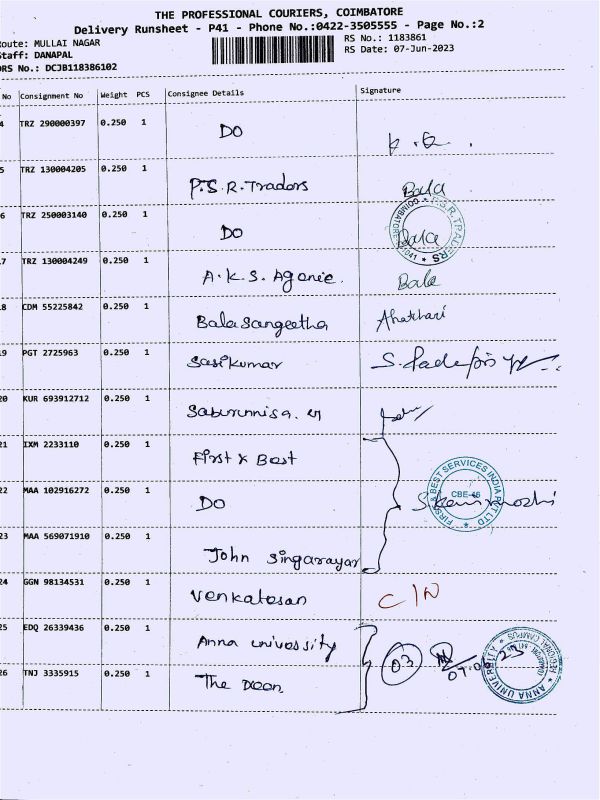 THE PROFESSIONAL COURIERS, COIMBATORE
Delivery Runsheet - P41 - Phone No.:0422-3505555 - Page No.:2
oute: MULLAI NAGAR
RS No.: 1183861
taff: DANAPAL
RS Date: 07-Jun-2023
DRS No.: DCJB118386102
No Consignment No Weight PCS Consignee Details Signature
4 TRZ 290000397 0.250 1 DO
5 TRZ 130004205 0.250 1 P.S.R. Tradors Bala
6 TRZ 250003140 0.250 1 DO Bala
P.S.R. TRADERS * COIMBATORE 641 041 *
7 TRZ 130004249 0.250 1 A.K.S. Agencie. Bala
8 CDM 55225842 0.250 1 Balasangeetha
9 PGT 2725963 0.250 1 Sasikumar
20 KUR 693912712 0.250 1 Saburunnisa. M
21 IXM 2233110 0.250 1 First & Best
22 MAA 102916272 0.250 1 DO
FIRST & BEST SERVICES INDIA PVT LTD * CBE-46
23 MAA 569071910 0.250 1 John Singarayar
24 GGN 98134531 0.250 1 Venkatesan C/N
25 EDQ 26339436 0.250 1 Anna univessity
03
07.06.23
ANNA UNIVERSITY * REGIONAL CAMPUS
26 TNJ 3335915 0.250 1 The Dean